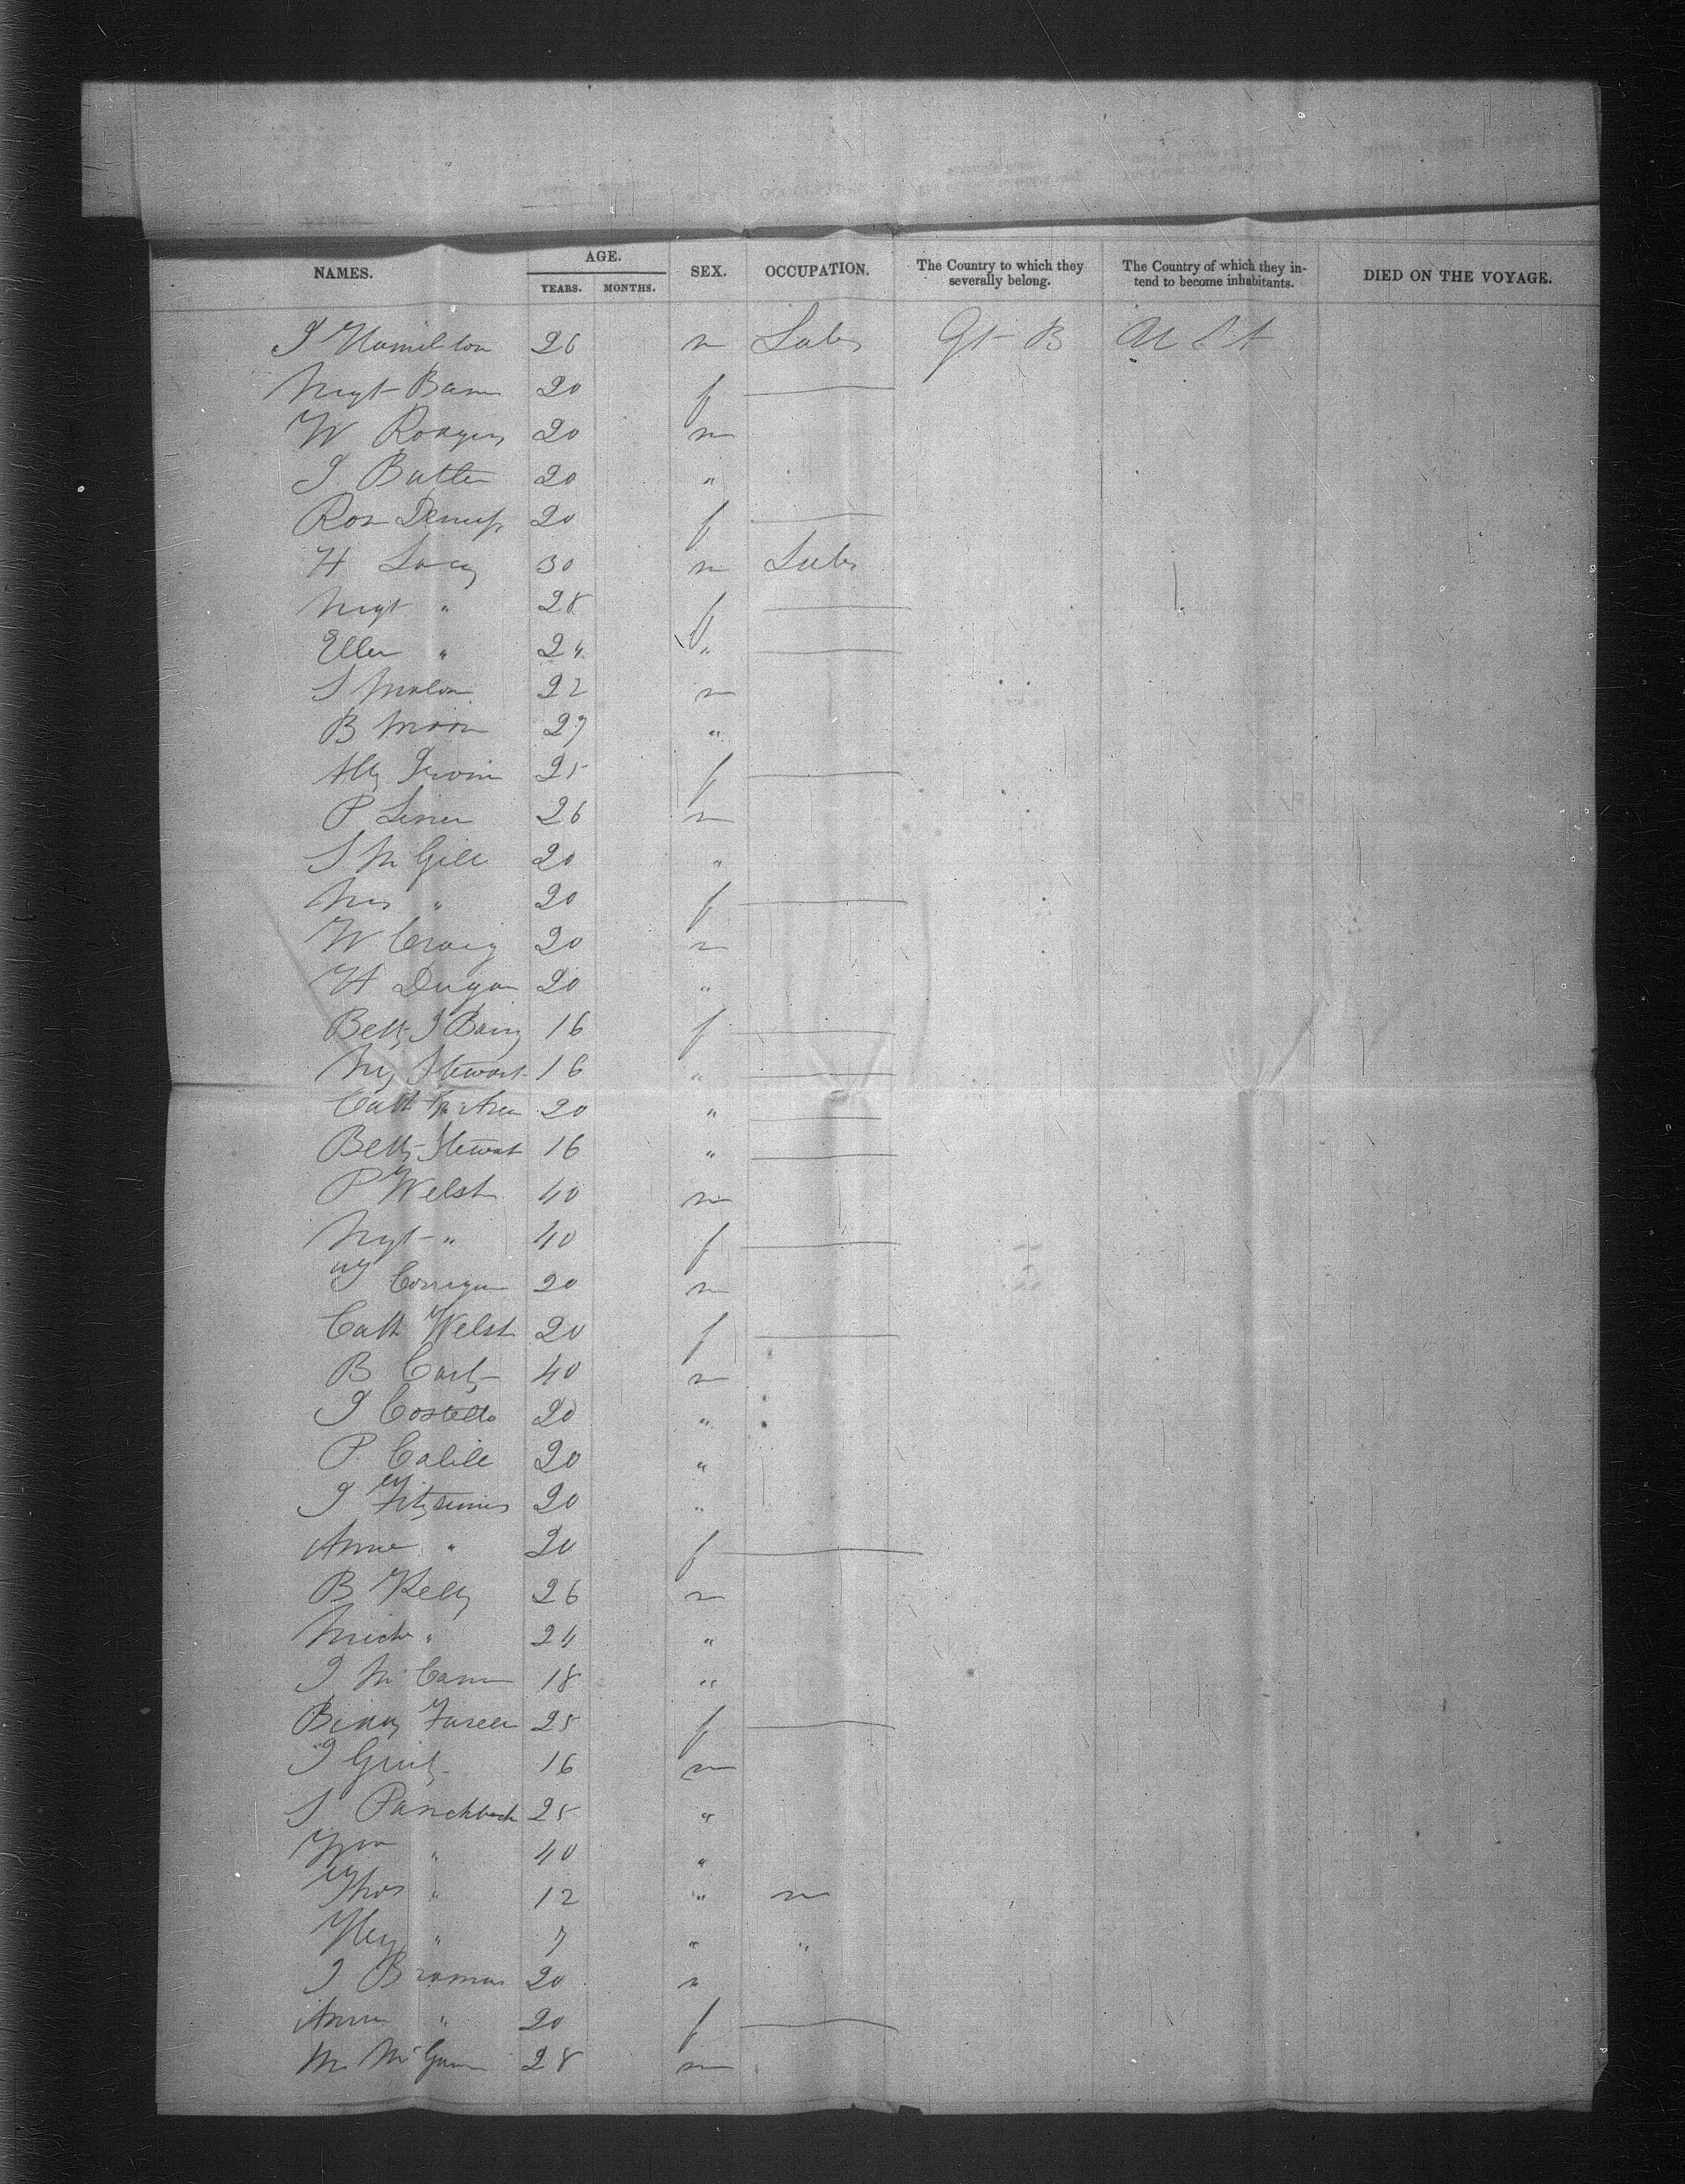 NAMES. AGE. YEARS. MONTHS. SEX. OCCUPATION. The Country to which they severally belong. The Country of which they intend to become inhabitants. DIED ON THE VOYAGE.
J Hamilton 26 m Labr Gt B U S A
Mgt 20 f
W Rodgers 20 m
J Butler 20 "
Rose 20 f
H Lacy 30 m Labr
Mgt " 28 f
Ellen " 24 "
22 m
B Moon 27 "
Irwin 25 f
P 26 m
S McGill 20 "
Mrs " 20 f
W Craig 20 m
H Dugan 20 "
Betty J 16 f
My Stewart 16 "
Cath 20 "
Betty Stewart 16 "
P Welsh 40 m
Mgt " 40 f
Corrigan 20 m
Cath Welsh 20 f
B 40 m
J Costello 20 "
P Cahill 20 "
J Fitzsimis 20 "
Anne " 20 f
B Kelly 26 m
Mich " 24 "
J McCann 18 "
Biddy 25 f
J 16 m
S Panchbeck 25 "
" 40 "
Thos " 12 " m
Hy " 7 " "
J 20 "
Anne " 20 f
M McGann 28 m